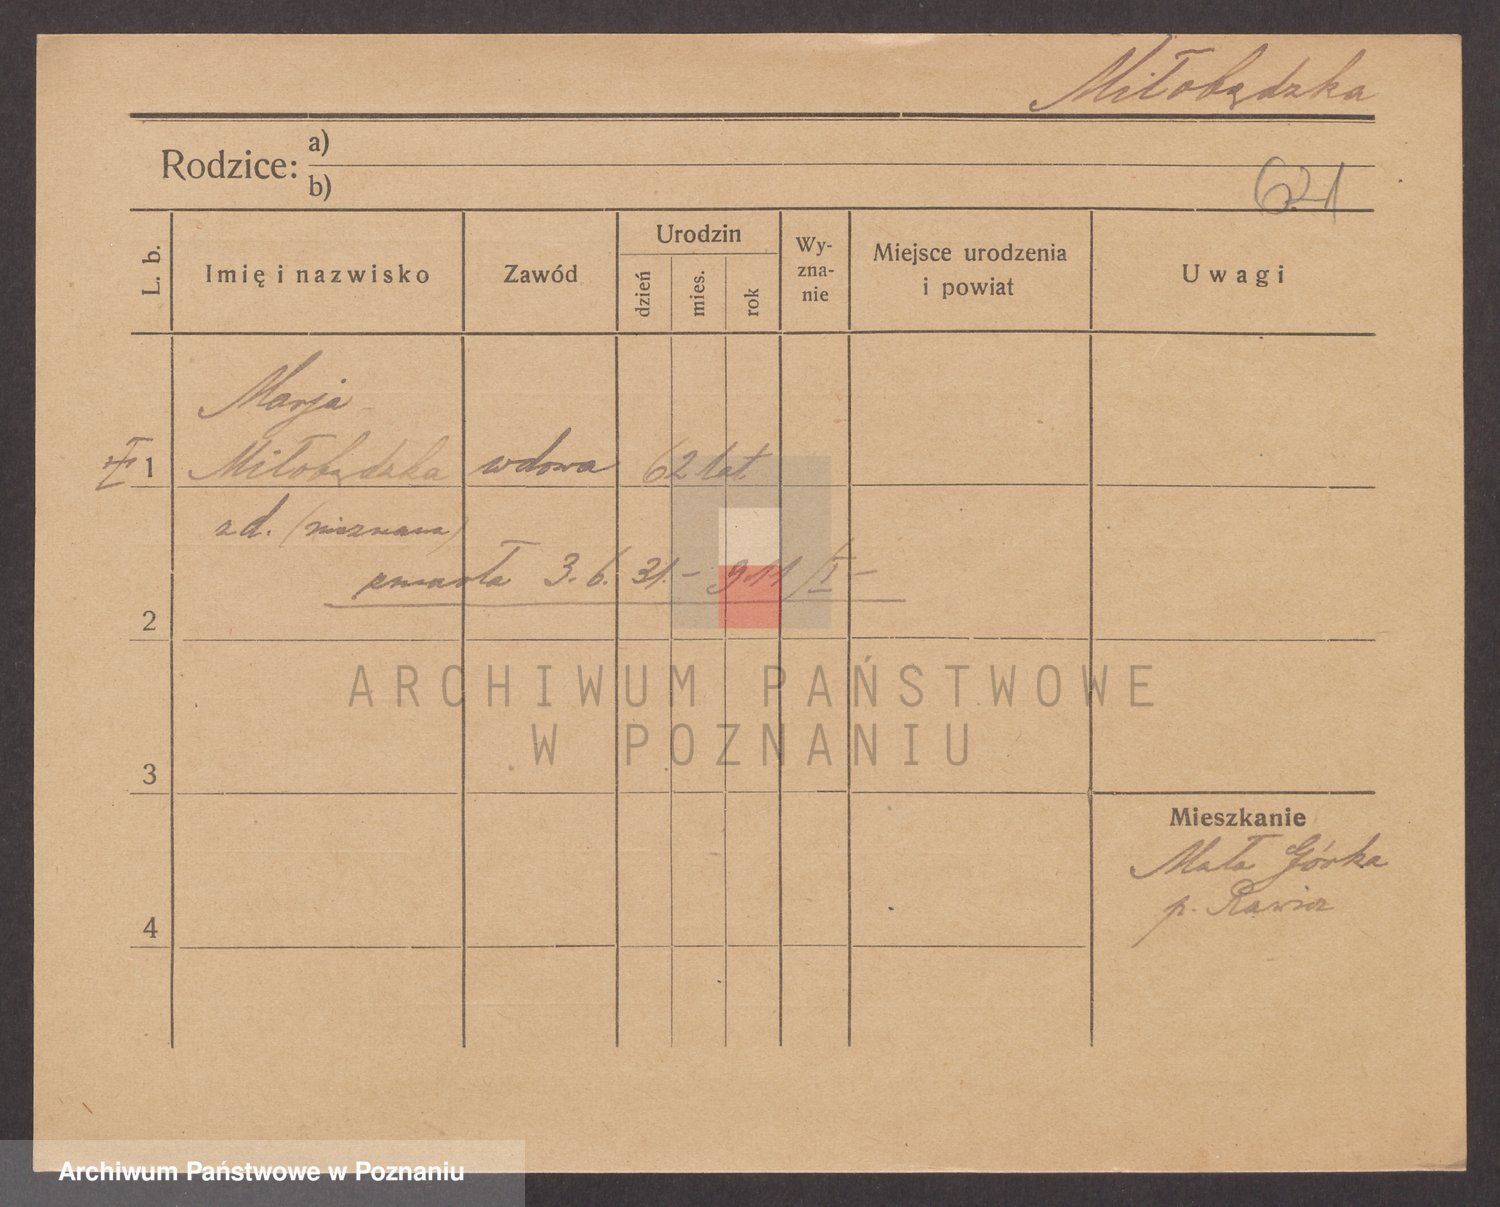 Miłobądzka
Rodzice: a)
b)
621
L. b.
Imię i nazwisko
Zawód
Urodzin
dzień
mies.
rok
Wy-
zna-
nie
Miejsce urodzenia
i powiat
Uwagi
Marja
1 Miłobądzka wdowa 62 lat
z d. (nieznana)
zmarła 3. 6. 31. – 911/I –
2
3
4
Mieszkanie
Mała Górka
p. Rawicz
ARCHIWUM PAŃSTWOWE
W POZNANIU
Archiwum Państwowe w Poznaniu